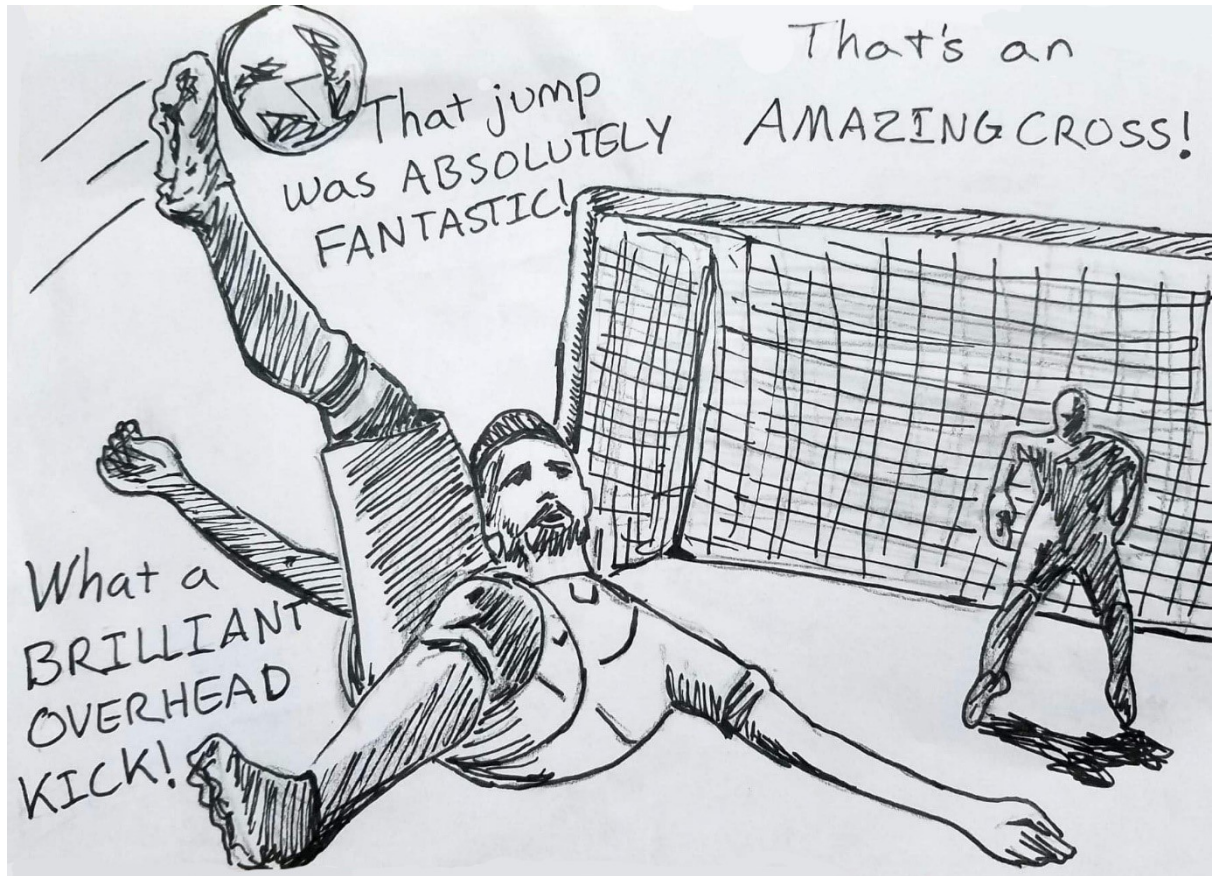 That jump
was ABSOLUTELY
FANTASTIC!
That's an
AMAZING CROSS!
What a
BRILLIANT
OVERHEAD
KICK!